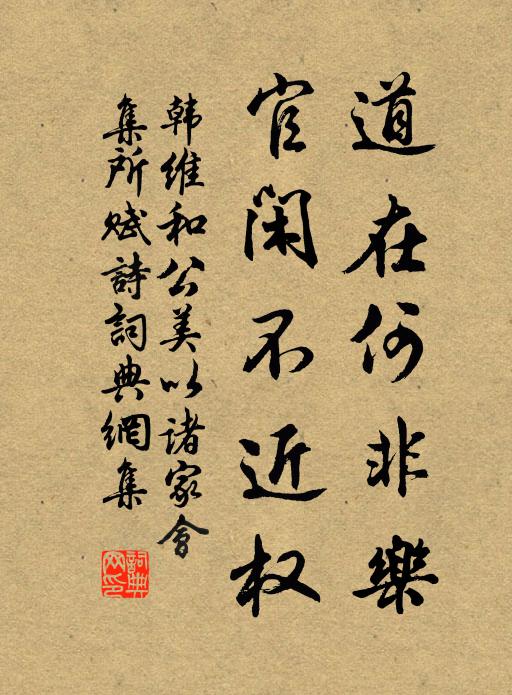 道在何非樂
官閑不近权
韩维和公美以诸家會
集所赋詩詞典網集
詞典网印